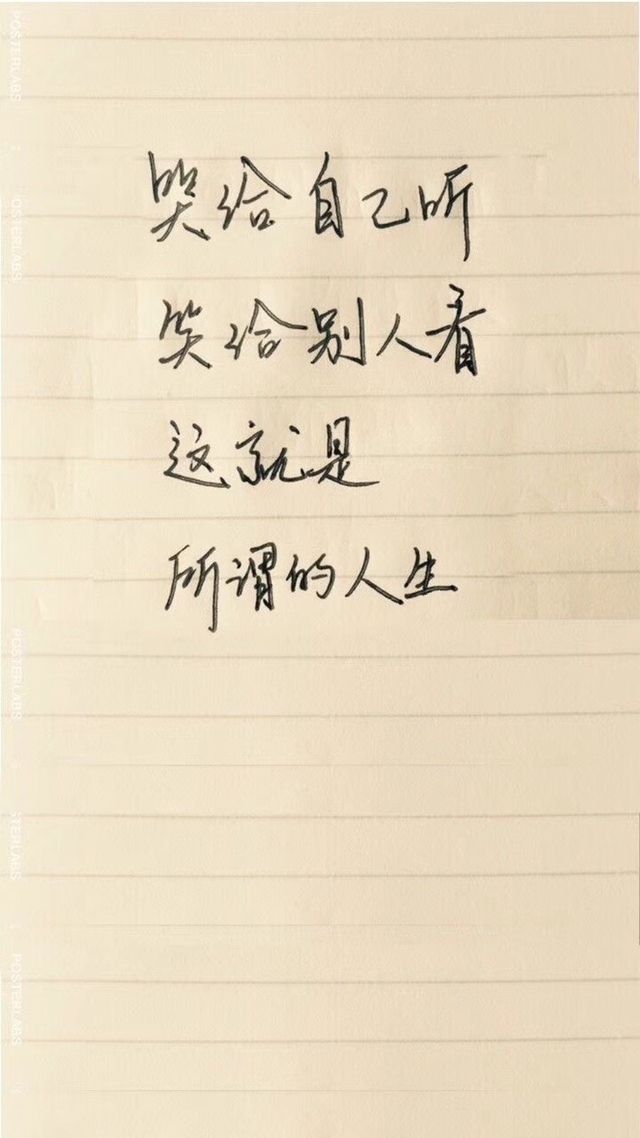 哭给自己听
笑给别人看
这就是
所谓的人生
POSTERLABS
OSTERLABS
POSTERLABS
STERLABS
POSTERLABS